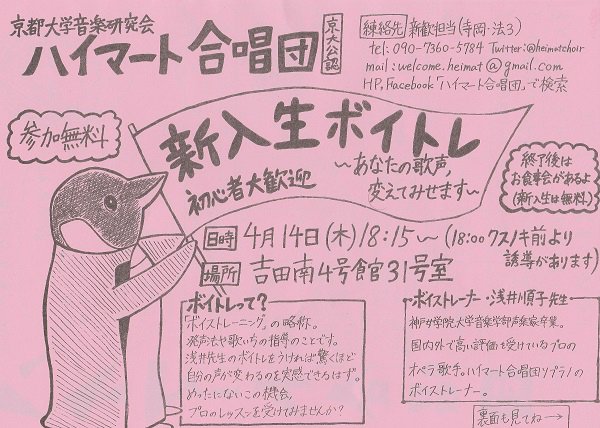 京都大学音楽研究会
ハイマート合唱団
京大公認
連絡先 新歓担当(寺岡・法3)
tel: 090-7360-5784 Twitter:@heimatchoir
mail: welcome.heimat@gmail.com
HP, Facebook「ハイマート合唱団」で検索
参加無料
新入生ボイトレ
～あなたの歌声,
変えてみせます～
初心者大歓迎
終了後は
お食事会があるよ
(新入生は無料)
日時 4月14日(木)18:15～(18:00クスノキ前より
誘導があります)
場所 吉田南4号館31号室
ボイトレって?
「ボイストレーニング」の略称。
発声法や歌い方の指導のことです。
浅井先生のボイトレをうければ驚くほど
自分の声が変わるのを実感できるはず。
めったにないこの機会,
プロのレッスンを受けてみませんか?
ボイストレーナー・浅井順子先生
神戸女学院大学音楽学部声楽家卒業。
国内外で高い評価を受けているプロの
オペラ歌手。ハイマート合唱団ソプラノの
ボイストレーナー。
裏面も見てね→